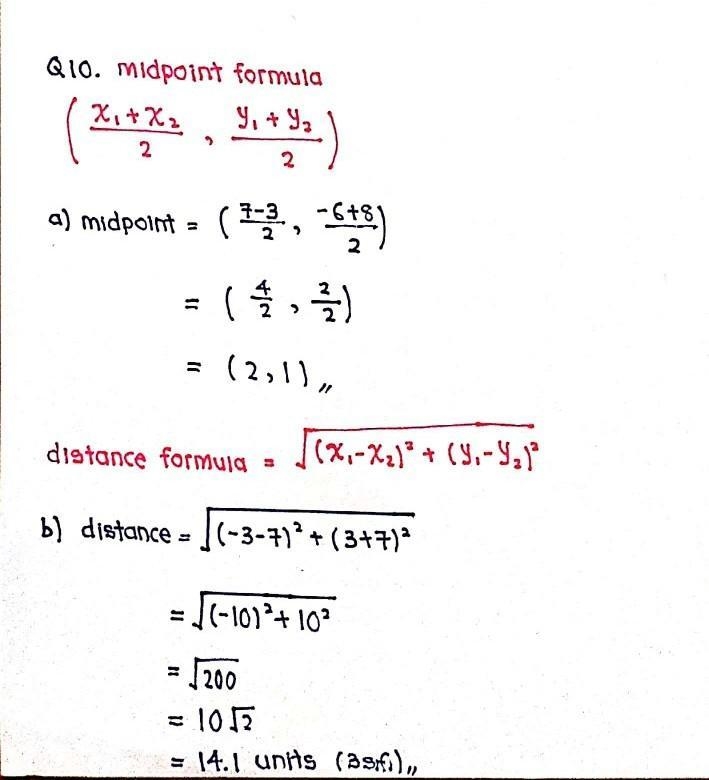 Q10. midpoint formula
(x₁+x₂/2 , y₁+y₂/2)
a) midpoint = (7-3/2 , -6+8/2)
= (4/2 , 2/2)
= (2,1)〃
distance formula = √(x₁-x₂)² + (y₁-y₂)²
b) distance = √(-3-7)² + (3+7)²
= √(-10)² + 10²
= √200
= 10√2
= 14.1 units (3sf)〃